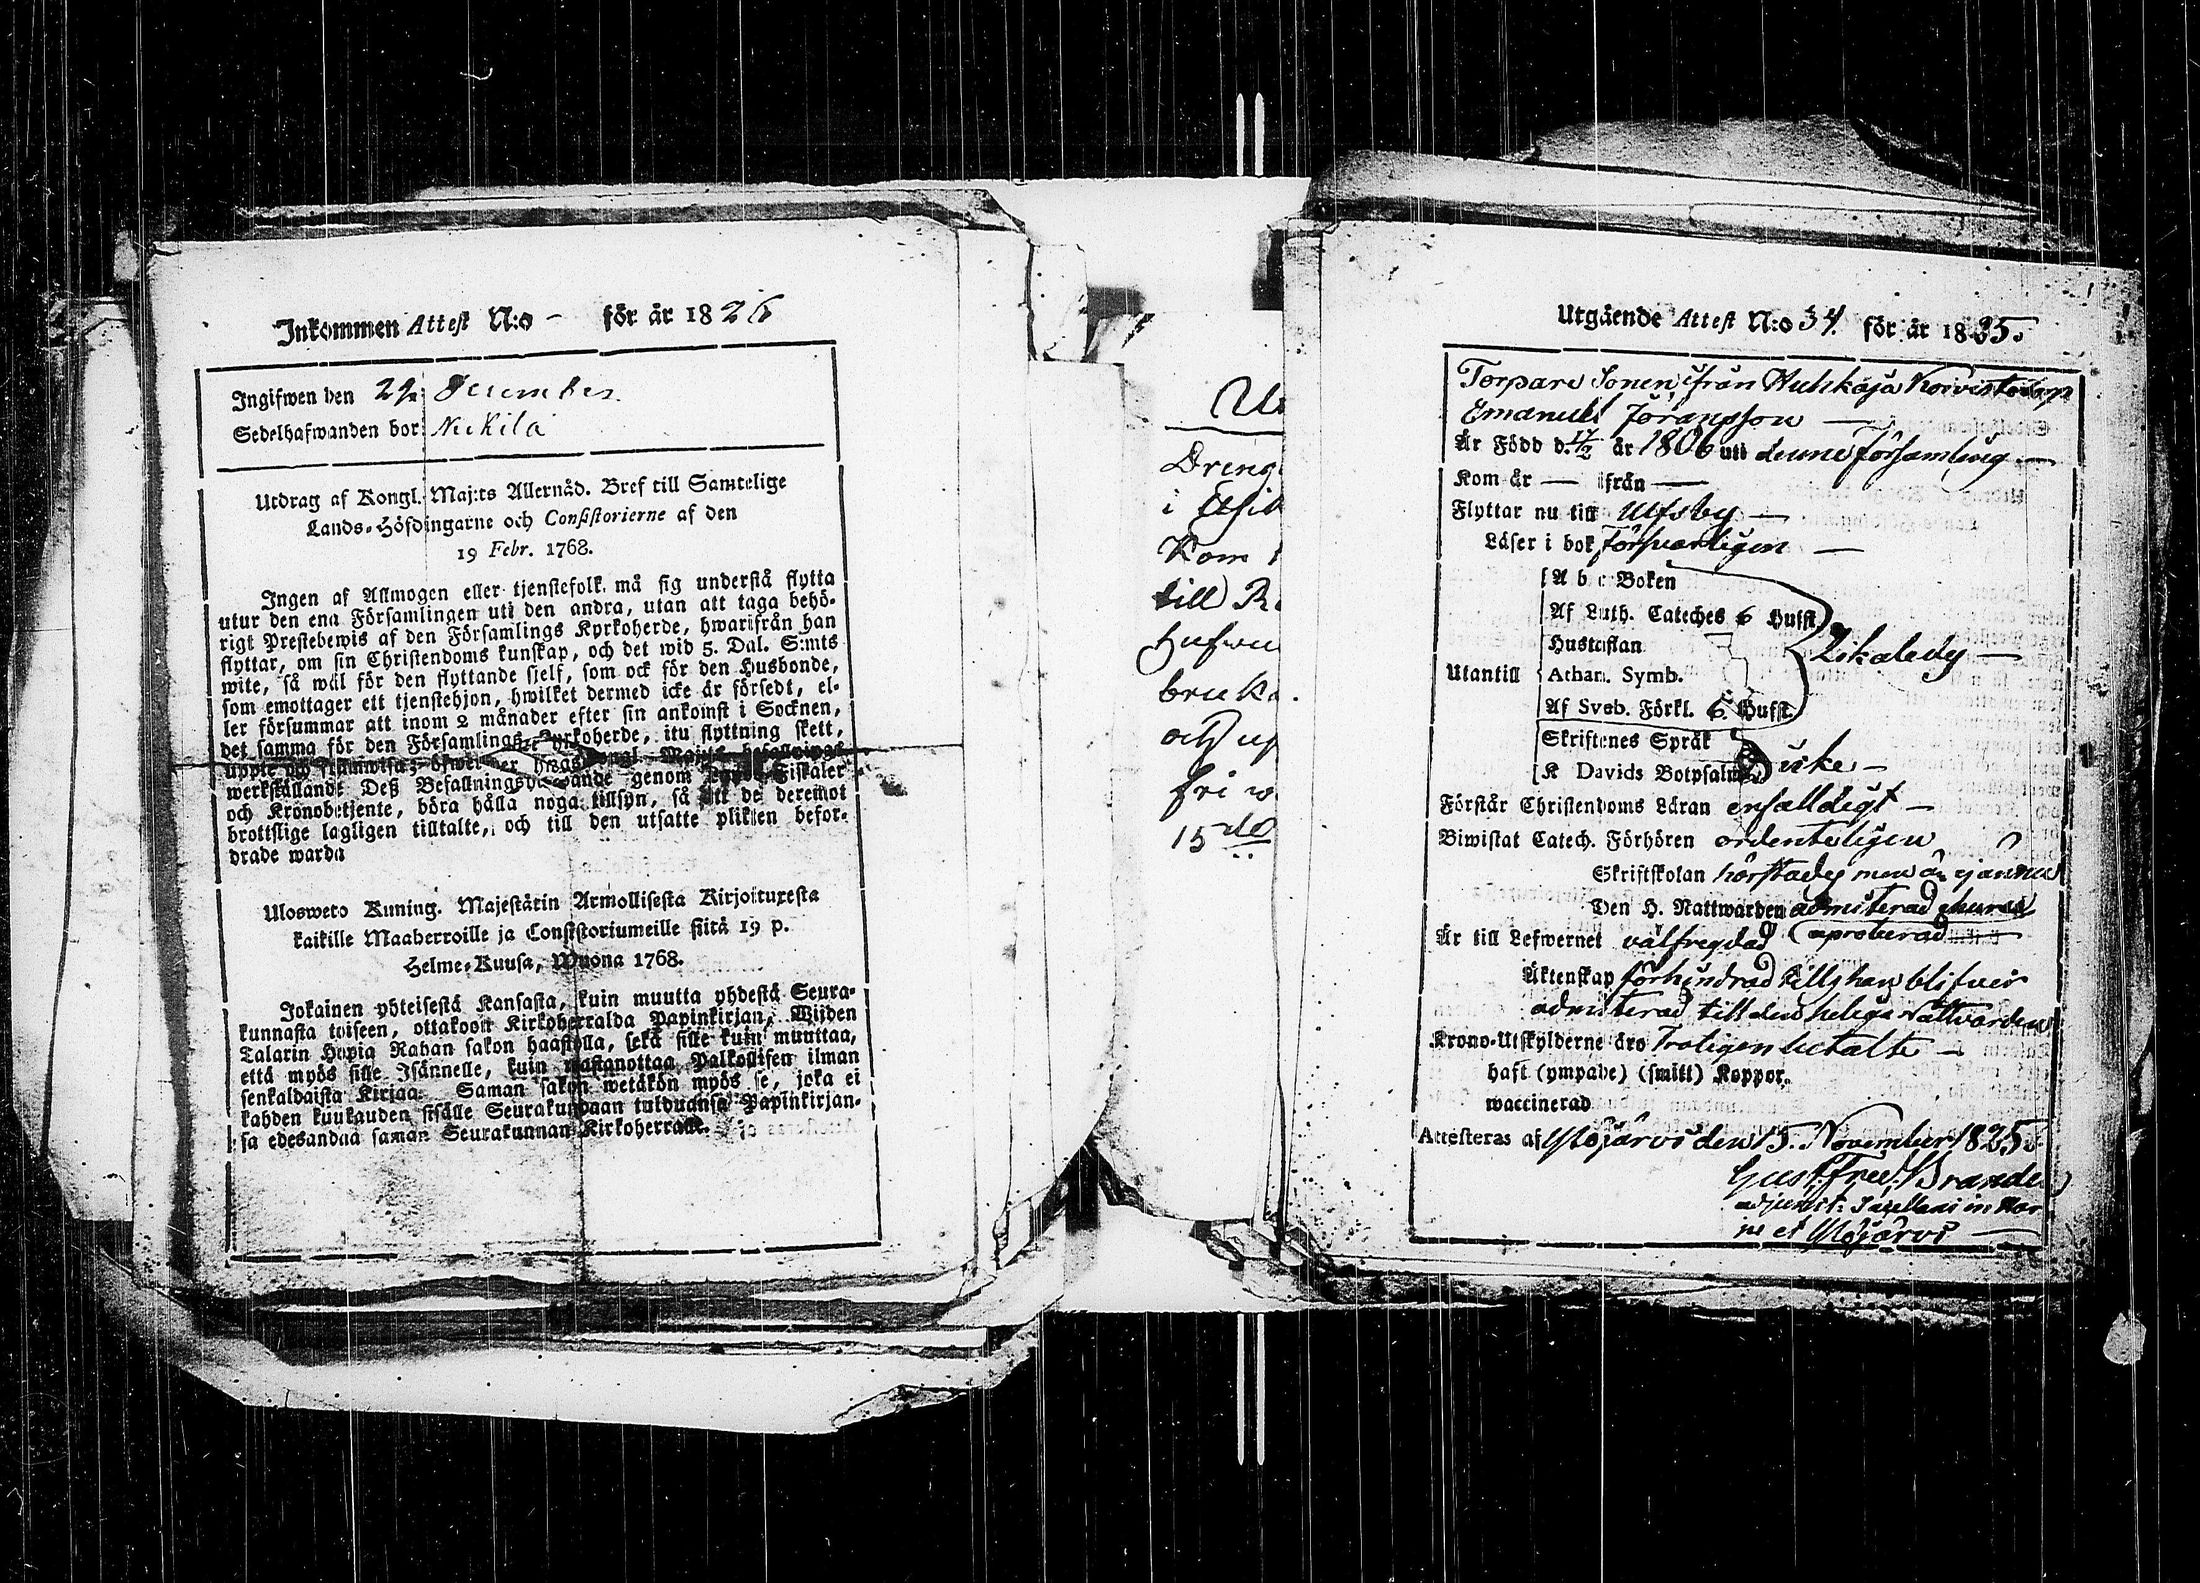 Inkommen Attest N:o - för år 1826
Ingifwen den 29 December
Sedelhafwanden bor Nickilä
Utdrag af Kongl. Maj:ts Allernåd. Bref till Samtelige
Lands-Höfdingarne och Consistorierne af den
19 Febr. 1768.
Ingen af Allmogen eller tjenstefolk må sig understå flytta
utur den ena Församlingen uti den andra, utan att taga behö-
rigt Prestebewis af den Församlings Kyrkoherde, hwarifrån han
flyttar, om sin Christendoms kunskap, och det wid 5. Dal. S:mts
wite, så wäl för den flyttande sjelf, som ock för den Husbonde,
som emottager ett tjenstehjon, hwilket dermed icke är försedt, el-
ler försummar att inom 2 månader efter sin ankomst i Socknen,
det samma för den Församlings Kyrkoherde, itu flyttning skett,
werkställande Deß Befallningshafwande genom Fiskaler
och Kronobetjente, böra hålla noga tillsyn, så att de deremot
brottslige lagligen tilltalte, och till den utsatte plikten befor-
drade warda
Ulosweto Kuning. Majestätin Armollisesta Kirjoituxesta
kaikille Maaherroille ja Consistoriumeille siitä 19 p.
Helme-Kuusa, Wuona 1768.
Jokainen yhteisestä Kansasta, kuin muutta yhdestä Seura-
kunnasta toiseen, ottakoon Kirkoherralda Papinkirjan, Wijden
Talarin Hopia Rahan sakon haastolla, sekä sille kuin muuttaa,
että myös sille Isännelle, kuin wastanottaa Palkollisen ilman
senkaldaista Kirjaa: Saman sakon wetäkön myös se, joka ei
kahden kuukauden sisälle Seurakundaan tulduansa Papinkirjan-
sa edesandaa saman Seurakunnan Kirkoherralle.
Dreng
i
Kom
till
Hufvu
bruka
och up
fri w
15 de
Utgående Attest N:o 34. för år 1825.
Torpare Sonen ifrån Huhkaja Koivisto torp
Emanuel Jöransson
Är Född d. 17/2 år 1806 uti denne församling
Kom år — ifrån —
Flyttar nu till Ulfsby —
Läser i bok försvarligen —
A b c Boken
Af Luth. Cateches 6 Hufst.
Hustaflan
Likaledes —
Utantill Athan. Symb.
Af Sveb. Förkl. 6 Hufst.
Skriftenes Språk
K Davids Botpsalmer
icke —
Förstår Christendoms Läran enfalldigt —
Biwistat Catech. Förhören ordenteligen
Skriftskolan men är ej ännu
Den H. Nattwarden admiterad
Är till Lefwernet välfregdad
Äktenskap förhindrad tills han blifver
admiterad till den heliga Nattvarden
Krono-Utskylderne äro troligen betalte —
haft (ympade) (smitt) Koppor.
waccinerad
Attesteras af Ylöjärvi den 15. November 1825.
Gust. Fred. Brander
adjunct: Sacellani in Kar
ne et Ylöjärvi —